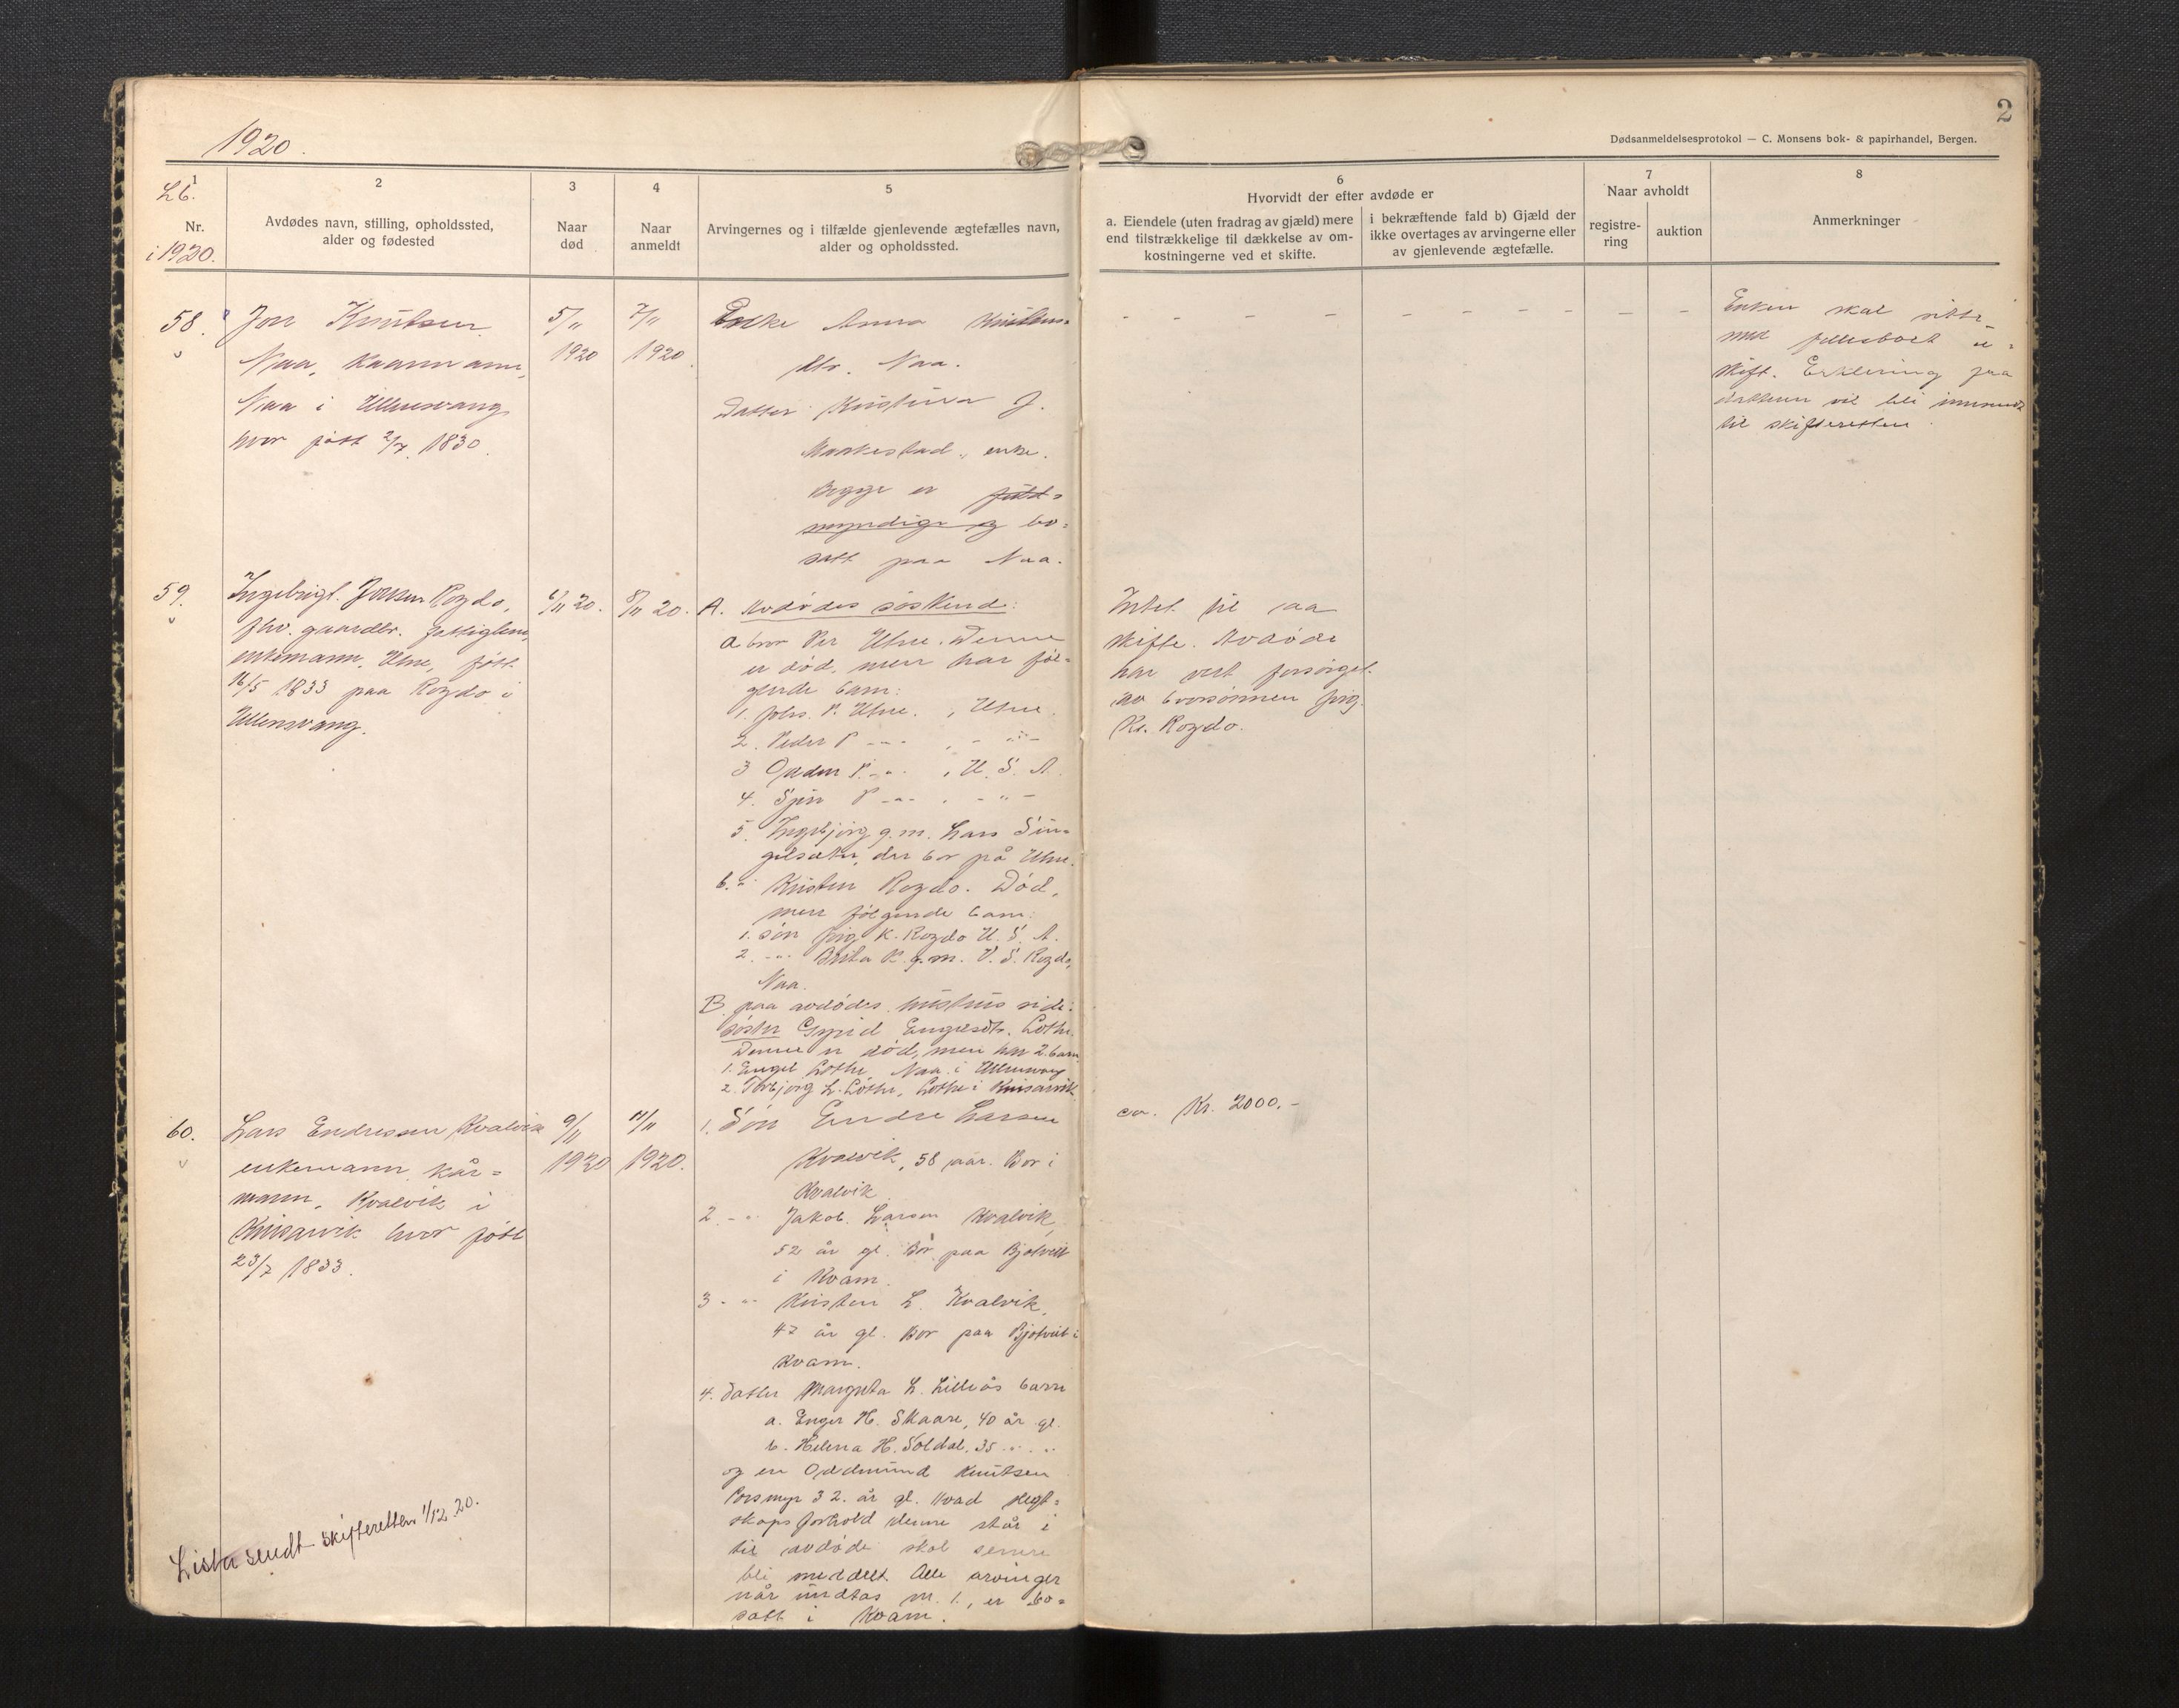 1920.
2
Dødsanmeldelsesprotokol — C. Monsens bok- & papirhandel, Bergen.
1
Lb.
Nr.
i 1920.
2
Avdødes navn, stilling, opholdssted,
alder og fødested
3
Naar
død
4
Naar
anmeldt
5
Arvingernes og i tilfælde gjenlevende ægtefælles navn,
alder og opholdssted.
6
Hvorvidt der efter avdøde er
a. Eiendele (uten fradrag av gjæld) mere
end tilstrækkelige til dækkelse av om-
kostningerne ved et skifte.
i bekræftende fald b) Gjæld der
ikke overtages av arvingerne eller
av gjenlevende ægtefælle.
7
Naar avholdt
registre-
ring
auktion
8
Anmerkninger
58.
Jon Knutsen
Naa, kaarmann,
Naa i Ullensvang
hvor født 2/7 1830.
5/11
1920
7/11
1920.
Enke Anna
Naa.
Datter Kristina J.
Maakestad, enke.
Begge er fuld=
myndige og bo=
satt paa Naa.
- - - - - - - - - - -
Enken skal sitte
med fellesboet u=
skift. Erklering fra
datteren vil bli innsendt
til skifteretten.
59.
Ingebrigt Jonsen Rogdo,
fhv. gaardbr. fattiglem,
enkemann, Utne, født
16/5 1833 paa Rogdo i
Ullensvang.
6/11 20.
8/11 20.
A. Avdødes søskend:
a bror Per Utne. Denne
er død, men har føl=
gende barn:
1. Johs. P. Utne, Utne.
2. Peder P -"- , -"-
3 P. -"- , U. S. A.
4. P -"- , -"-
5. Ingebjørg g.m. Lars
der bor på Utne.
b. -"- Kristen Rogdo. Død,
men følgende barn:
1. søn K. Rogdo U. S. A.
2. -"- Brita K. g.m. V. S. Rogdo,
Naa.
B. paa avdødes hustrus side:
søster Gyrid Lothe.
Denne er død, men har 2 barn
1. Engel Lothe, Naa i Ullensvang
2. Torbjørg L. Lothe, Lothe i Kinsarvik
Intet til aa
skifte. Avdøde
har vert forsørget
av brorsønnen
Kr. Rogdo.
60.
Lars Endresen Kvalvik
enkemann, kår=
mann, Kvalvik i
Kinsarvik hvor født
23/7 1833.
9/11
1920
11/11
1920.
1. Søn Endre Larsen
Kvalvik, 58 aar. Bor i
Kvalvik
2. -"- Jakob Larsen Kvalvik,
52 år gl. Bor paa
i Kvam.
3 -"- Kristen L. Kvalvik,
47 år gl. Bor paa
Kvam.
4. Datter Margreta L. Lilleås barn
a. H. Skaare, 40 år gl.
b. Helena H. Soldal, 35 -"- -"-
og en Oddmund Knutsen
32 år gl. Hvad slegt=
skapsforhold denne står i
til avdøde skal senere
bli meddelt. Alle arvinger
når undtas nr. 1, er bo=
satt i Kvam.
ca. Kr. 2000.-
Lista sendt skifteretten 1/12 20.